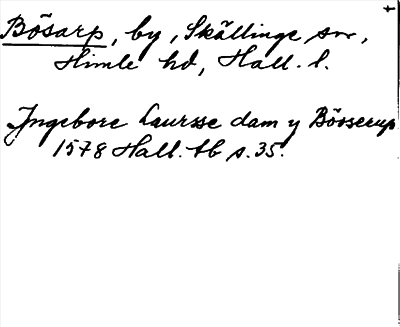 Bösarp, by, Skällinge sn,
Himle hd, Hall. l.
Ingebore Laursse dam y Bösserup
1578 Hall. tb s. 35.